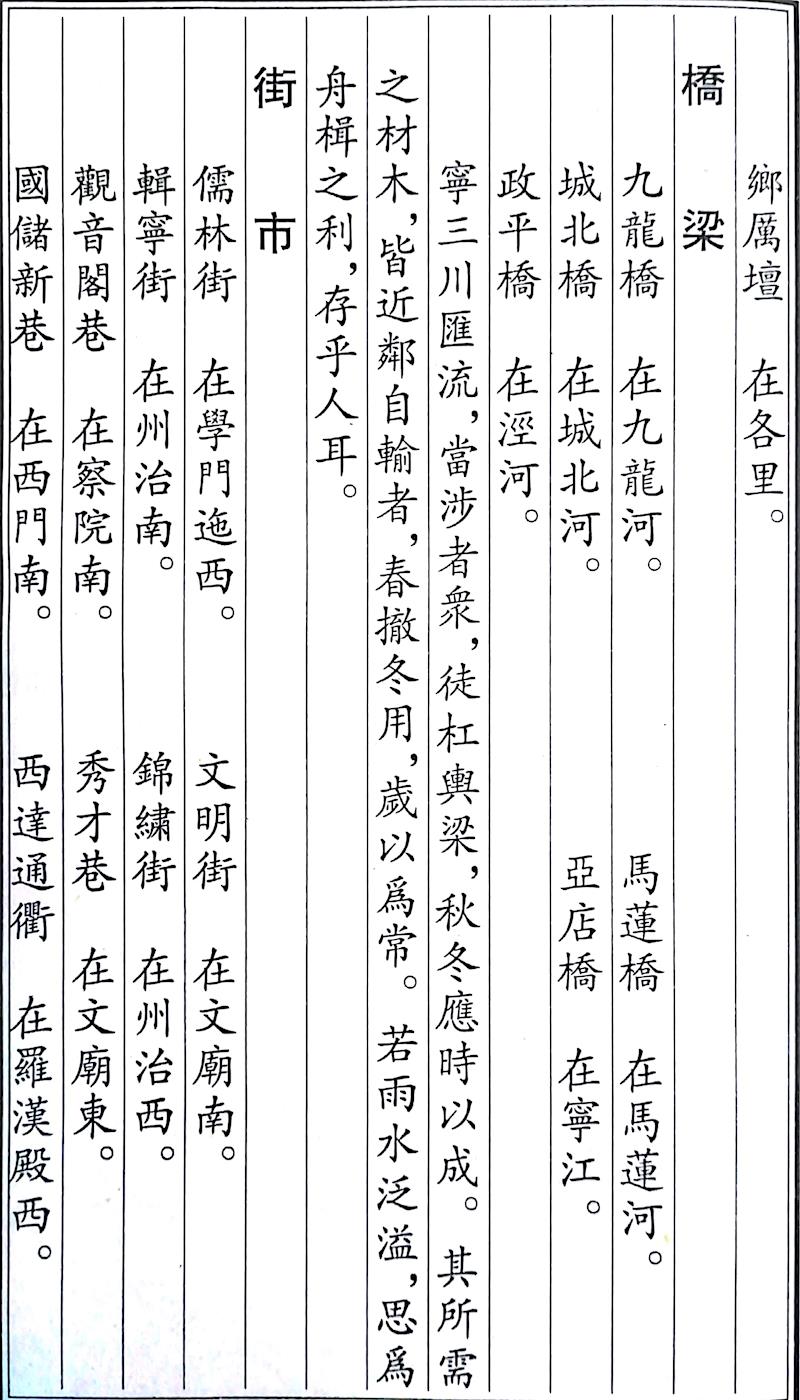 鄉厲壇　在各里。
橋　梁
九龍橋　在九龍河。　馬蓮橋　在馬蓮河。
城北橋　在城北河。　亞店橋　在寧江。
政平橋　在涇河。
寧三川匯流，當涉者衆，徒杠輿梁，秋冬應時以成。其所需
之材木，皆近鄰自輸者，春撤冬用，歲以爲常。若雨水泛溢，思爲
舟楫之利，存乎人耳。
街　市
儒林街　在學門迤西。　文明街　在文廟南。
輯寧街　在州治南。　錦繡街　在州治西。
觀音閣巷　在察院南。　秀才巷　在文廟東。
國儲新巷　在西門南。　西達通衢　在羅漢殿西。